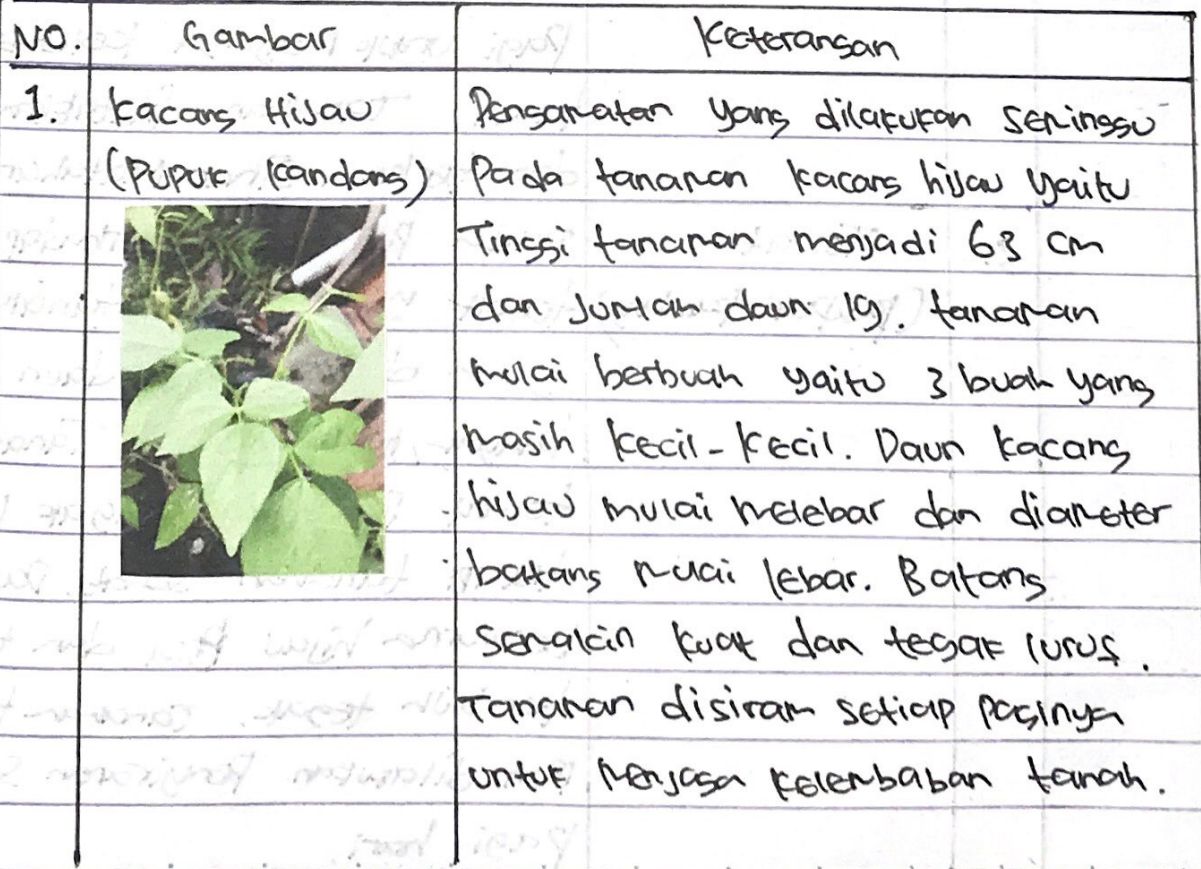 NO.
Gambar
Keterangan
1.
Kacang Hijau
(Pupuk Kandang)
Pengamatan yang dilakukan seminggu
Pada tanaman kacang hijau yaitu
Tinggi tanaman menjadi 63 cm
dan Jumlah daun 19. tanaman
mulai berbuah yaitu 3 buah yang
masih kecil-kecil. Daun kacang
hijau mulai melebar dan diameter
batang mulai lebar. Batang
semakin kuat dan tegak lurus.
Tanaman disiram setiap paginya
untuk menjaga kelembaban tanah.